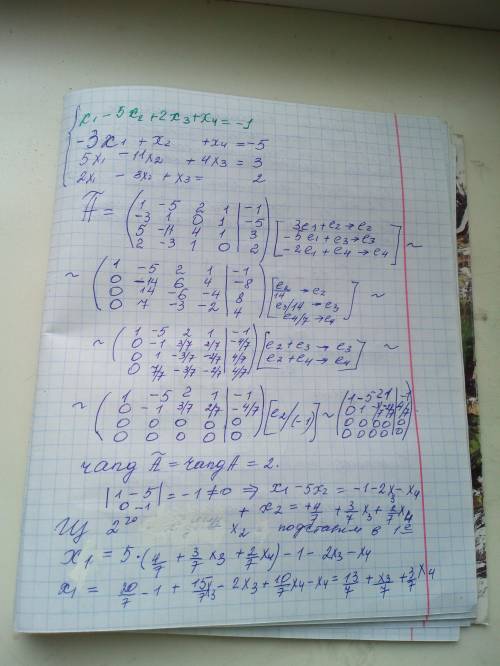 x₁ - 5x₂ + 2x₃ + x₄ = -1
-3x₁ + x₂ + x₄ = -5
5x₁ - 11x₂ + 4x₃ = 3
2x₁ - 3x₂ + x₃ = 2
Ã = ( 1 -5 2 1 | -1 ; -3 1 0 1 | -5 ; 5 -11 4 1 | 3 ; 2 -3 1 0 | 2 ) [ 3e₁+e₂→e₂ ; -5e₁+e₃→e₃ ; -2e₁+e₄→e₄ ] ~
~ ( 1 -5 2 1 | -1 ; 0 -14 6 4 | -8 ; 0 14 -6 -4 | 8 ; 0 7 -3 -2 | 4 ) [ e₂/14→e₂ ; e₃/14→e₃ ; e₄/7→e₄ ] ~
~ ( 1 -5 2 1 | -1 ; 0 -1 3/7 2/7 | -4/7 ; 0 1 -3/7 -2/7 | 4/7 ; 0 7/7 -3/7 -2/7 | 4/7 ) [ e₂+e₃→e₃ ; e₂+e₄→e₄ ] ~
~ ( 1 -5 2 1 | -1 ; 0 -1 3/7 2/7 | -4/7 ; 0 0 0 0 | 0 ; 0 0 0 0 | 0 ) [e₂/(-1)] ~ ( 1 -5 2 1 | -1 ; 0 1 -3/7 -2/7 | 4/7 ; 0 0 0 0 | 0 ; 0 0 0 0 | 0 )
rang Ã = rang A = 2.
| 1 -5 ; 0 -1 | = -1 ≠ 0 ⇒ x₁ - 5x₂ = -1 - 2x₃ - x₄
+ x₂ = +4/7 + 3/7 x₃ + 2/7 x₄
Из 2го x₂ подставим в 1е
x₁ = 5·(4/7 + 3/7 x₃ + 2/7 x₄) - 1 - 2x₃ - x₄
x₁ = 20/7 - 1 + 15/7 x₃ - 2x₃ + 10/7 x₄ - x₄ = 13/7 + x₃/7 + 3/7 x₄